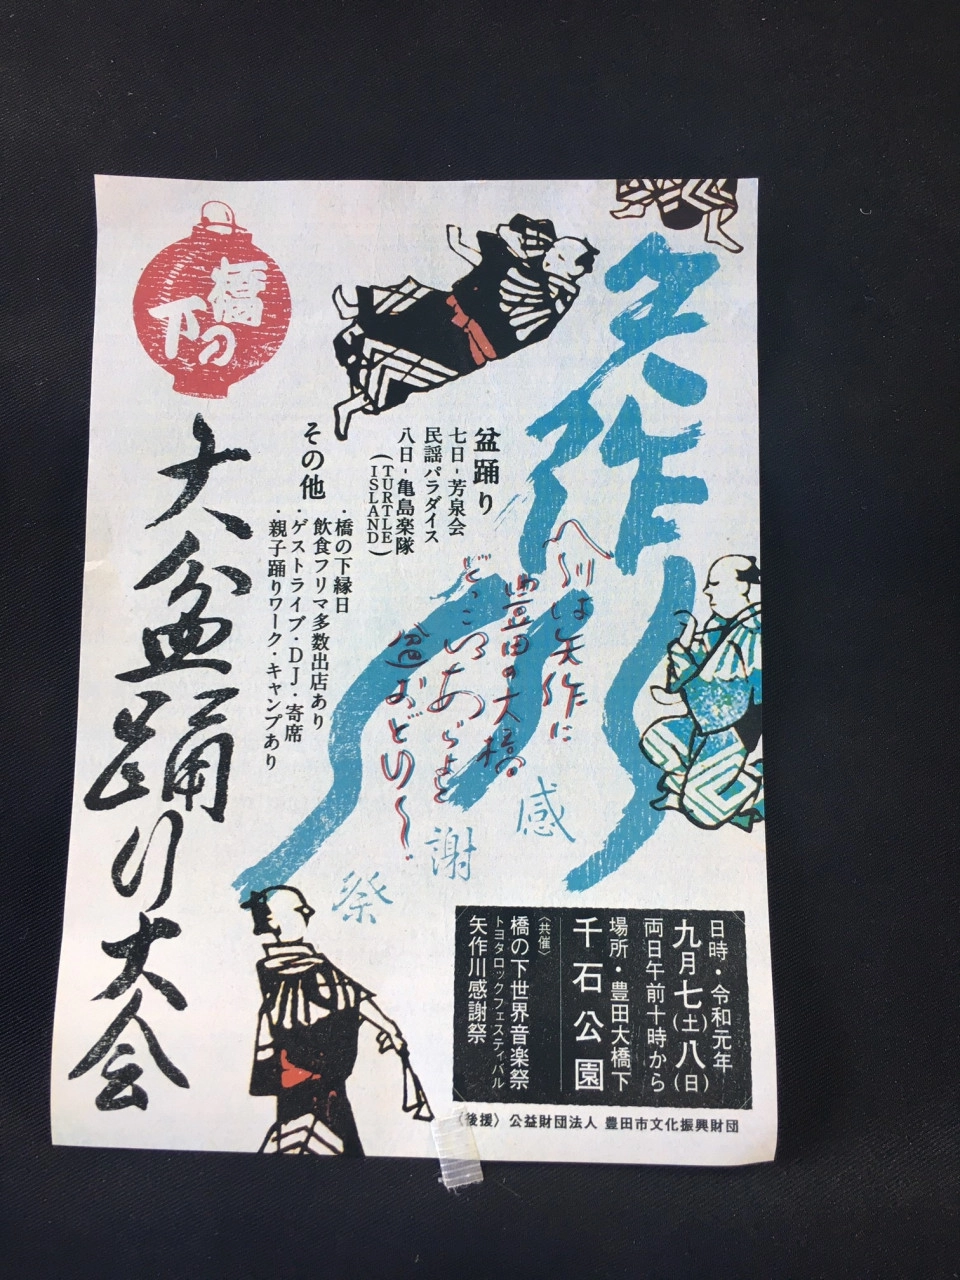 矢作川
感謝祭
橋の下
大盆踊り大会
盆踊り
七日-芳泉会
民謡パラダイス
八日-亀島楽隊
(TURTLE ISLAND)
その他
・橋の下縁日
飲食フリマ多数出店あり
・ゲストライブ・DJ・寄席
・親子踊りワーク・キャンプあり
川は矢作に
豊田の大橋
どっこいあらよと
おどり〜
日時・令和元年
九月七(土)八(日)
両日午前十時から
場所・豊田大橋下
千石公園
〈共催〉
橋の下世界音楽祭
トヨタロックフェスティバル
矢作川感謝祭
〈後援〉公益財団法人 豊田市文化振興財団